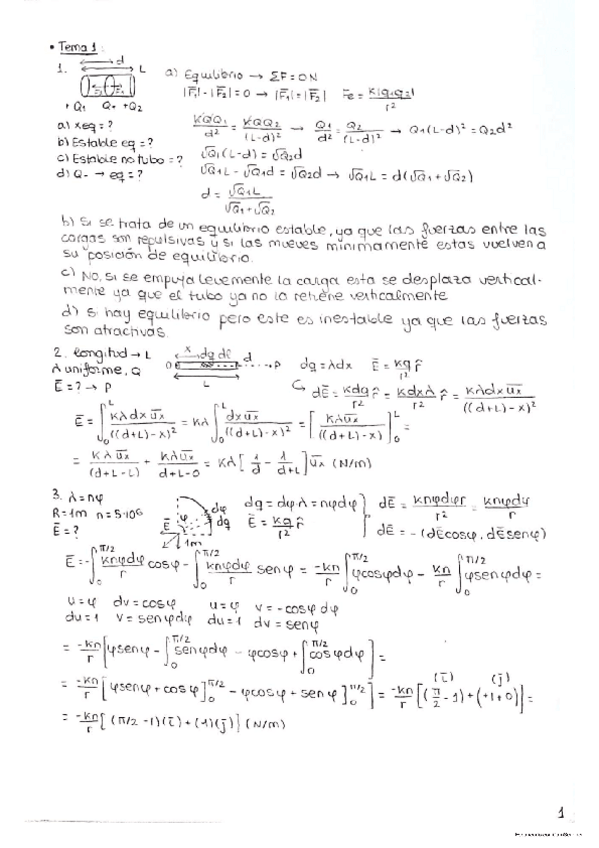 • Tema 1:
1.
d
L
+Q1 Q+ +Q2
a) Equilibrio → ΣF = 0N
|F̄1| - |F̄2| = 0 → |F̄1| = |F̄2| F̄e = K|q1q2|/r²
a) xeq = ?
b) Estable eq = ?
c) Estable no tubo = ?
d) Q- → eq = ?
KQQ1/d² = KQQ2/(L-d)² → Q1/d² = Q2/(L-d)² → Q1(L-d)² = Q2d²
√Q1(L-d) = √Q2d
√Q1L - √Q1d = √Q2d → √Q1L = d(√Q1 + √Q2)
d = √Q1L/(√Q1 + √Q2)
b) Sí se trata de un equilibrio estable, ya que las fuerzas entre las
cargas son repulsivas y si las mueves mínimamente estas vuelven a
su posición de equilibrio.
c) No, si se empuja levemente la carga esta se desplaza vertical-
mente ya que el tubo ya no la retiene verticalmente
d) Sí hay equilibrio pero este es inestable ya que las fuerzas
son atractivas.
2. longitud → L
λ uniforme, Q
Ē = ? → P
x dq dĒ
0 d P
L
dq = λdx Ē = kq/r² r̂
dĒ = kdq/r² r̂ = kdxλ/r² r̂ = kλdx ūx/((d+L)-x)²
Ē = ∫₀ᴸ kλdx ūx/((d+L)-x)² = kλ ∫₀ᴸ dx ūx/((d+L)-x)² = [kλūx/((d+L)-x)]₀ᴸ =
= kλūx/(d+L-L) - kλūx/(d+L-0) = kλ[1/d - 1/(d+L)]ūx (N/m)
3. λ = nφ
R = 1m n = 5·10⁶
Ē = ?
Ē φ dφ
dq
1m
dq = dφ·λ = nφdφ
Ē = kq/r² r̂
dĒ = knφdφr/r² = knφdφ/r
dĒ = -(dĒcosφ, dĒsenφ)
Ē = -∫₀^π/2 knφdφ/r cosφ - ∫₀^π/2 knφdφ/r senφ = -kn/r ∫₀^π/2 φcosφdφ - kn/r ∫₀^π/2 φsenφdφ =
u = φ dv = cosφ u = φ v = -cosφ dφ
du = 1 v = senφdφ du = 1 dv = senφ
= -kn/r [φsenφ - ∫₀^π/2 senφdφ - φcosφ + ∫₀^π/2 cosφdφ] =
= -kn/r [φsenφ + cosφ]₀^π/2 - φcosφ + senφ]₀^π/2] = -kn/r [(π/2 - 1) + (+1+0)] =
(ī) (j̄)
= -kn/r [(π/2 - 1)(ī) + (1)(j̄)] (N/m)
1